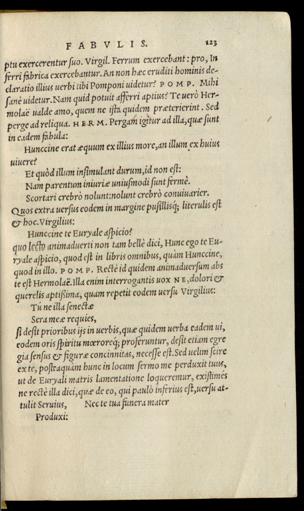 FABVLIS. 123
ptu exercerentur suo. Virgil. Ferrum exercebant: pro, In
ferri fabrica exercebantur. An non hæc eruditi hominis de-
claratio illius uerbi tibi Pomponi uidetur? POMP. Mihi
sanè uidetur. Nam quid potuit afferri aptius? Te uerò Her-
molaë ualde amo, quem ne ista quidem præterierint. Sed
perge ad reliqua. HERM. Pergam igitur ad illa, quæ sunt
in eadem fabula:
Hunccine erat æquum ex illius more, an illum ex huius
uiuere?
Et quòd illum insimulant durum, id non est:
Nam parentum iniuriæ uniusmodi sunt fermè.
Scortari crebrò nolunt: nolunt crebrò conuiuarier.
Quos extra uersus eodem in margine pusillisq; literulis est
& hoc. Virgilius:
Hunccine te Euryale aspicio?
quo lecto animaduerti non tam bellè dici, Hunc ego te Eu-
ryale aspicio, quod est in libris omnibus, quàm Hunccine,
quod in illo. POMP. Rectè id quidem animaduersum abs
te est Hermolaë. Illa enim interrogantis uox NE, dolori &
querelis aptissima, quam repetit eodem uersu Virgilius:
Tú ne illa senectæ
Sera meæ requies,
si desit prioribus ijs in uerbis, quæ quidem uerba eadem ui,
eodem oris spiritu mœroreq; proferuntur, desit etiam egre
gia sensus & figuræ concinnitas, necesse est. Sed uelim scire
ex te, postquàm hunc in locum sermo me perduxit tuus,
ut de Euryali matris lamentatione loqueremur, existimés
ne rectè illa dici, quæ de eo, qui paulò inferius est, uersu at-
tulit Seruius, Nec te tua funera mater
Produxi: